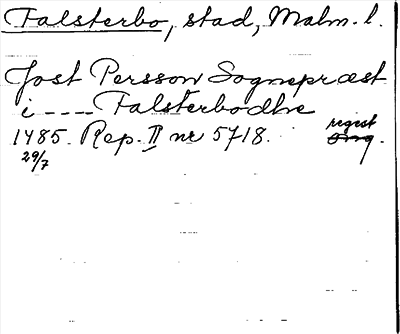 Falsterbo, stad, Malm. l.
Jost Persson Sognepræst
i ---- Falsterbodhe
1485. Rep. II nr 5718. regest
29/7